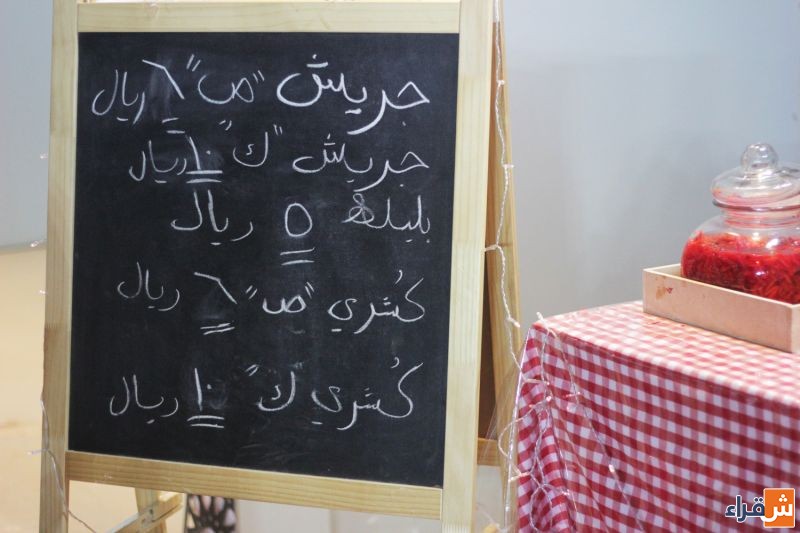 جريش "ص" ٦ ريال
جريش "ك" ١٠ ريال
بليلة ٥ ريال
كُشري "ص" ٦ ريال
كُشَري ك ١٠ ريال
شقراء